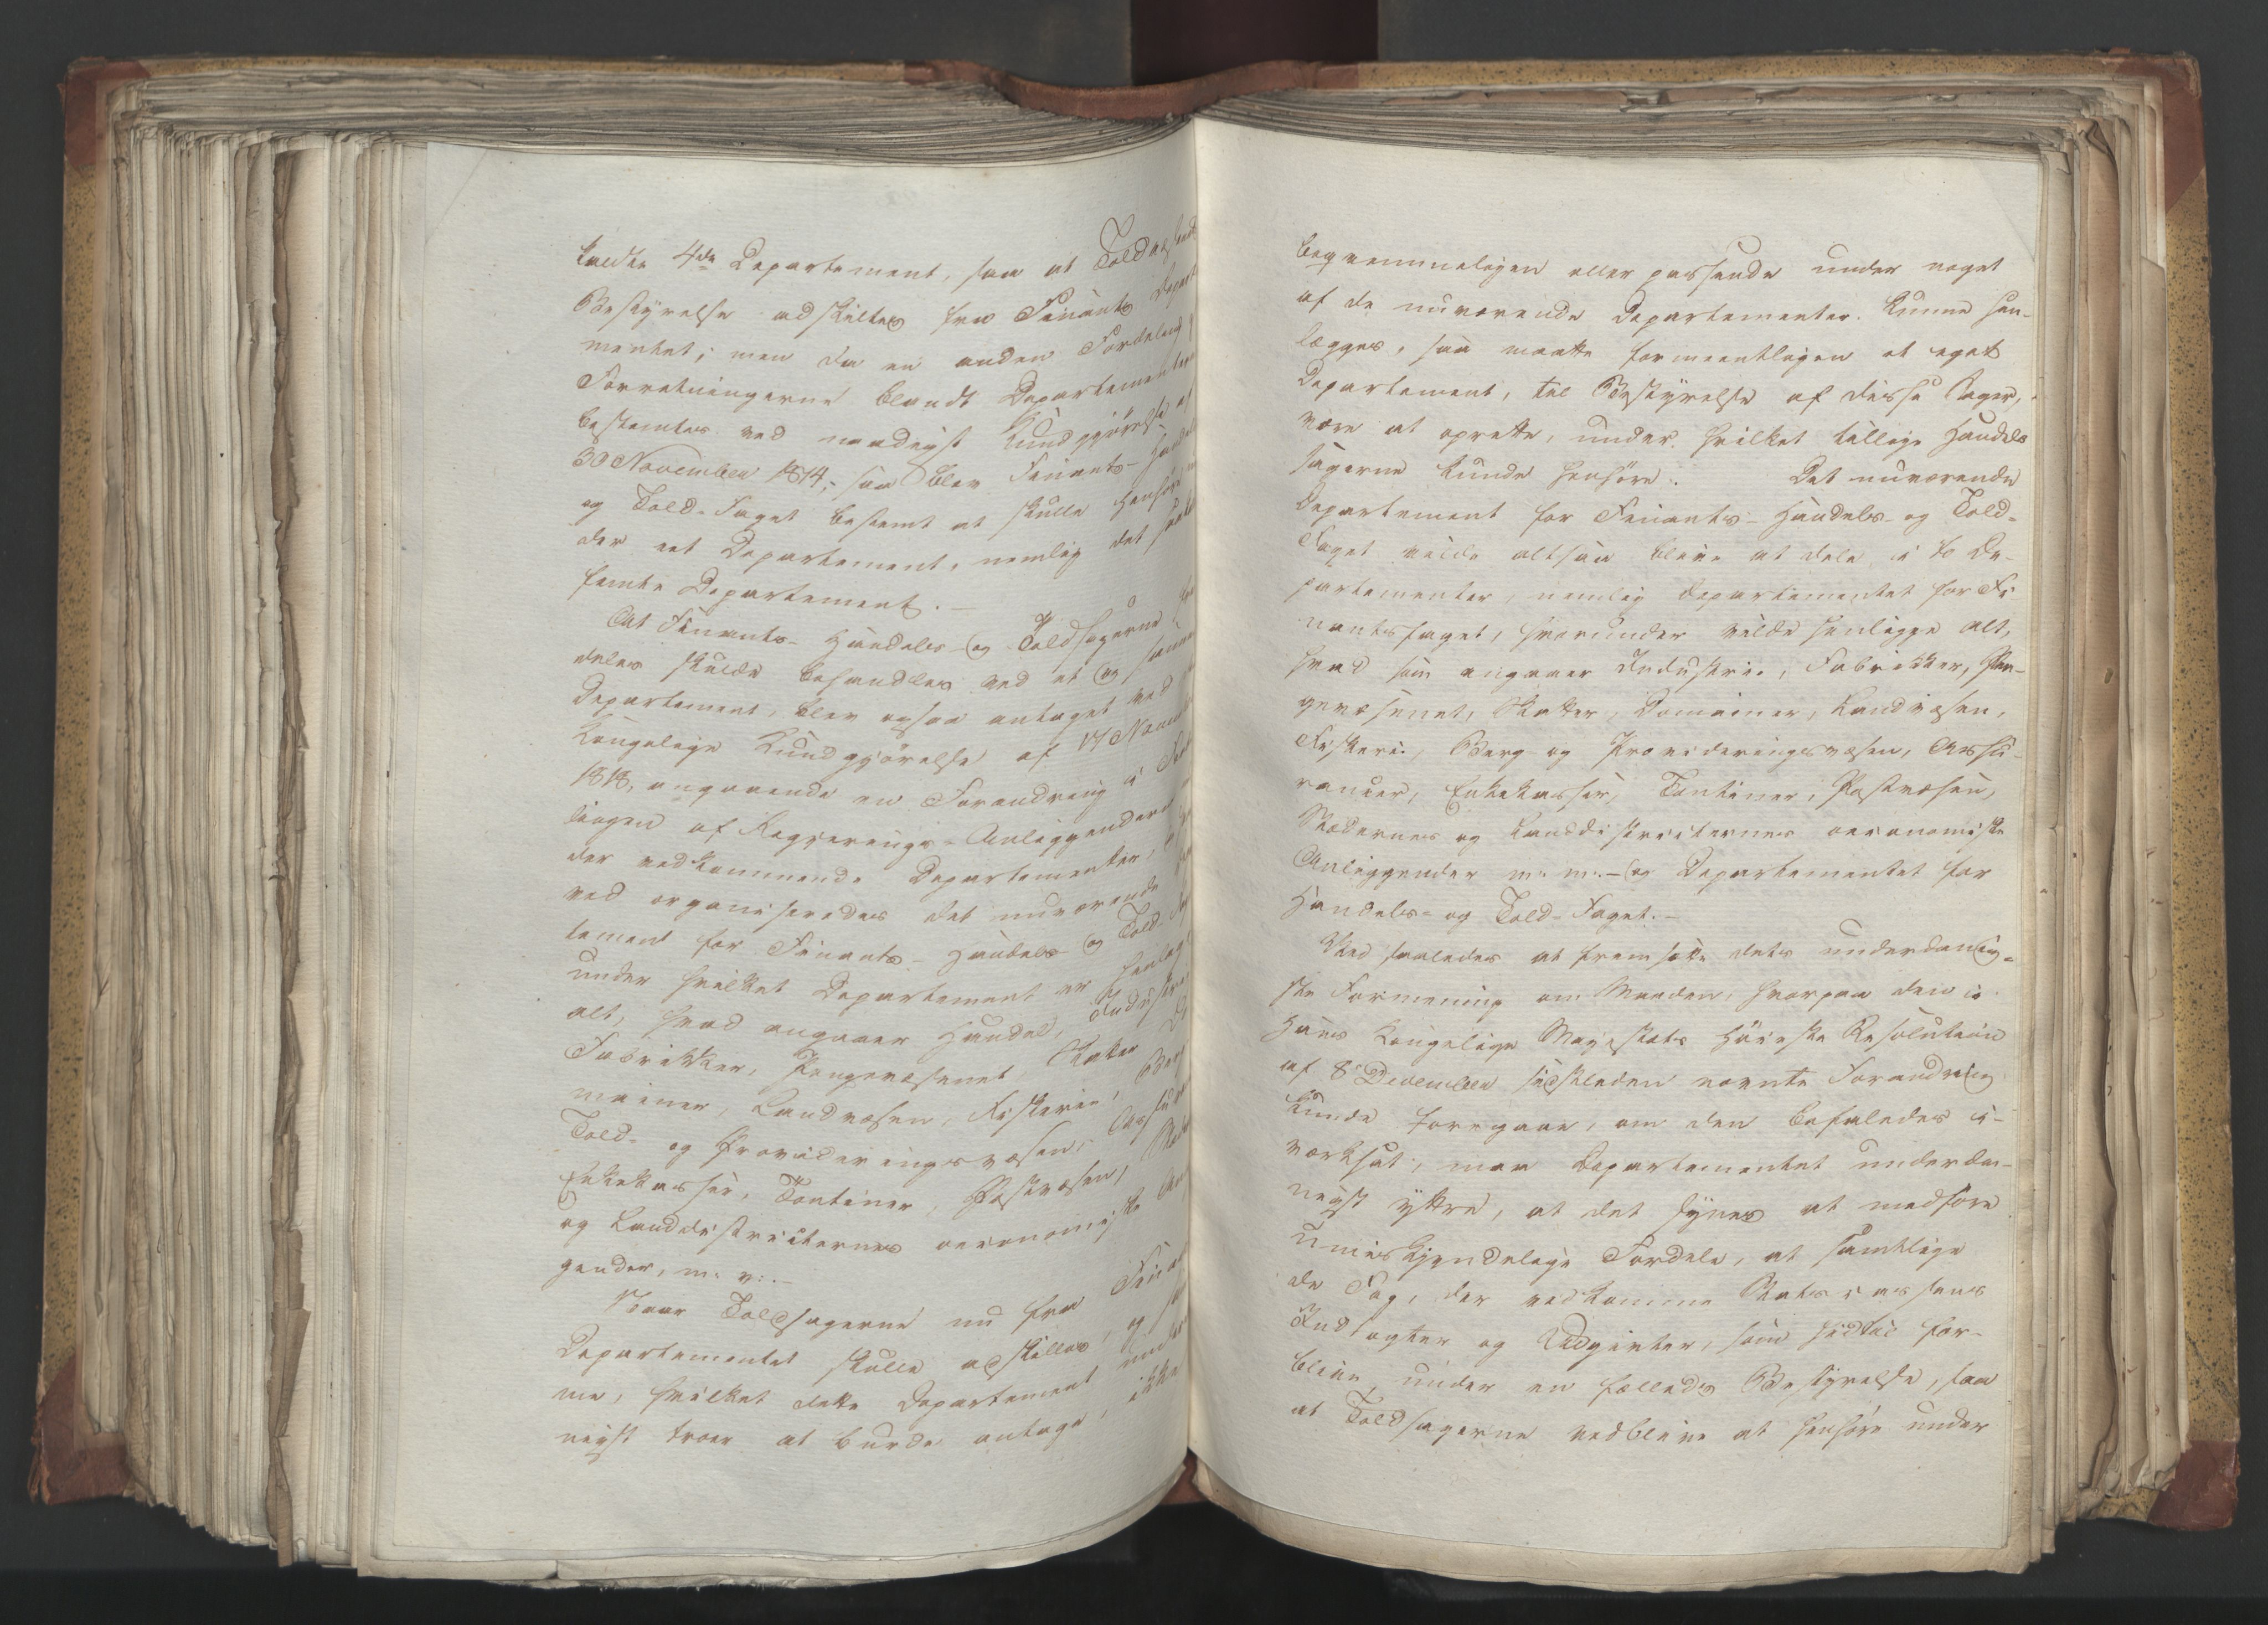 kaldte 4de Departement, saa at Toldvæsenets
Bestyrelse adskiltes fra Finants Departe
mentet; men da en anden Fordeling
Forretningerne blandt Departementerne
bestemtes ved naadigst Kundgjörelse af
30 November 1814, saa blev Finants- Handels
og Told-Faget bestemt at skulle henhøre
der eet Departement, nemlig det saakaldte
femte Departement.-
At Finants- Handels- og Toldsagerne
deles skulde behandles ved et og samme
Departement, blev ogsaa antaget ved
Kongelige Kundgjörelse af 17 Novemb
1818, angaaende en Forandring i For
lingen af Regjerings-Anliggenderne
der vedkommende Departementer,
ved organiseredes det nuværende Depar
tement for Finants- Handels- og Told-Faget
under hvilket Departement er henlagt
alt, hvad angaaer Handel, Industrie
Fabrikker, Pengevæsenet, Skatter Do
mainer, Landvæsen, Fiskerie, Berg
Told- og Provideringsvæsen, Assur
Enkekasser, Tontiner, Postvæsen, Stæd
og Landdistricternes oeconomiske An
gender, m: v:.-
Naar Toldsagerne nu fra Finants
Departementet skulle adskilles, og
me, hvilket dette Departement underda
nigst troer at burde antage, ikke
beqvemmeligen eller passende under noget
af de nuværende Departementer kunne hen-
lægges, saa maatte formeentligen et eget
Departement, til Bestyrelse af disse Sager,
være at oprette, under hvilket tillige Handels
sagerne kunde henhøre. Det nuværende
Departement for Finants- Handels- og Told-
Faget vilde altsaa blive at dele i to De-
partementer, nemlig Departementet for Fi
nantsfaget, hvorunder vilde henligge alt,
hvad som angaaer Industrie, Fabrikker, Pen-
gevæsenet, Skatter, Domainer, Landvæsen,
Fiskerie, Berg- og Provideringsvæsen, Assu-
rancer, Enkekasser, Tontiner, Postvæsen,
Stædernes og Landdistricternes oeconomiske
Anliggender m: m:.- og Departementet for
Handels- og Told-Faget.-
Ved saaledes at fremsætte dets underdanig-
ste Formening om Maaden, hvorpaa den i
Hans Kongelige Majestæts Höieste Resolution
af 8 December sidstleden nævnte Forandring
kunde foregaae, om den befaledes i-
værksat, maa Departementet underda-
nigst yttre, at det synes at medføre
umiskjendelige Fordele, at samtlige
de Fag, der vedkomme Statscassens
Indtægter og Udgivter, som hidtil for-
blive under en fælleds Bestyrelse, saa
at Toldsagerne vedblive at henhøre under